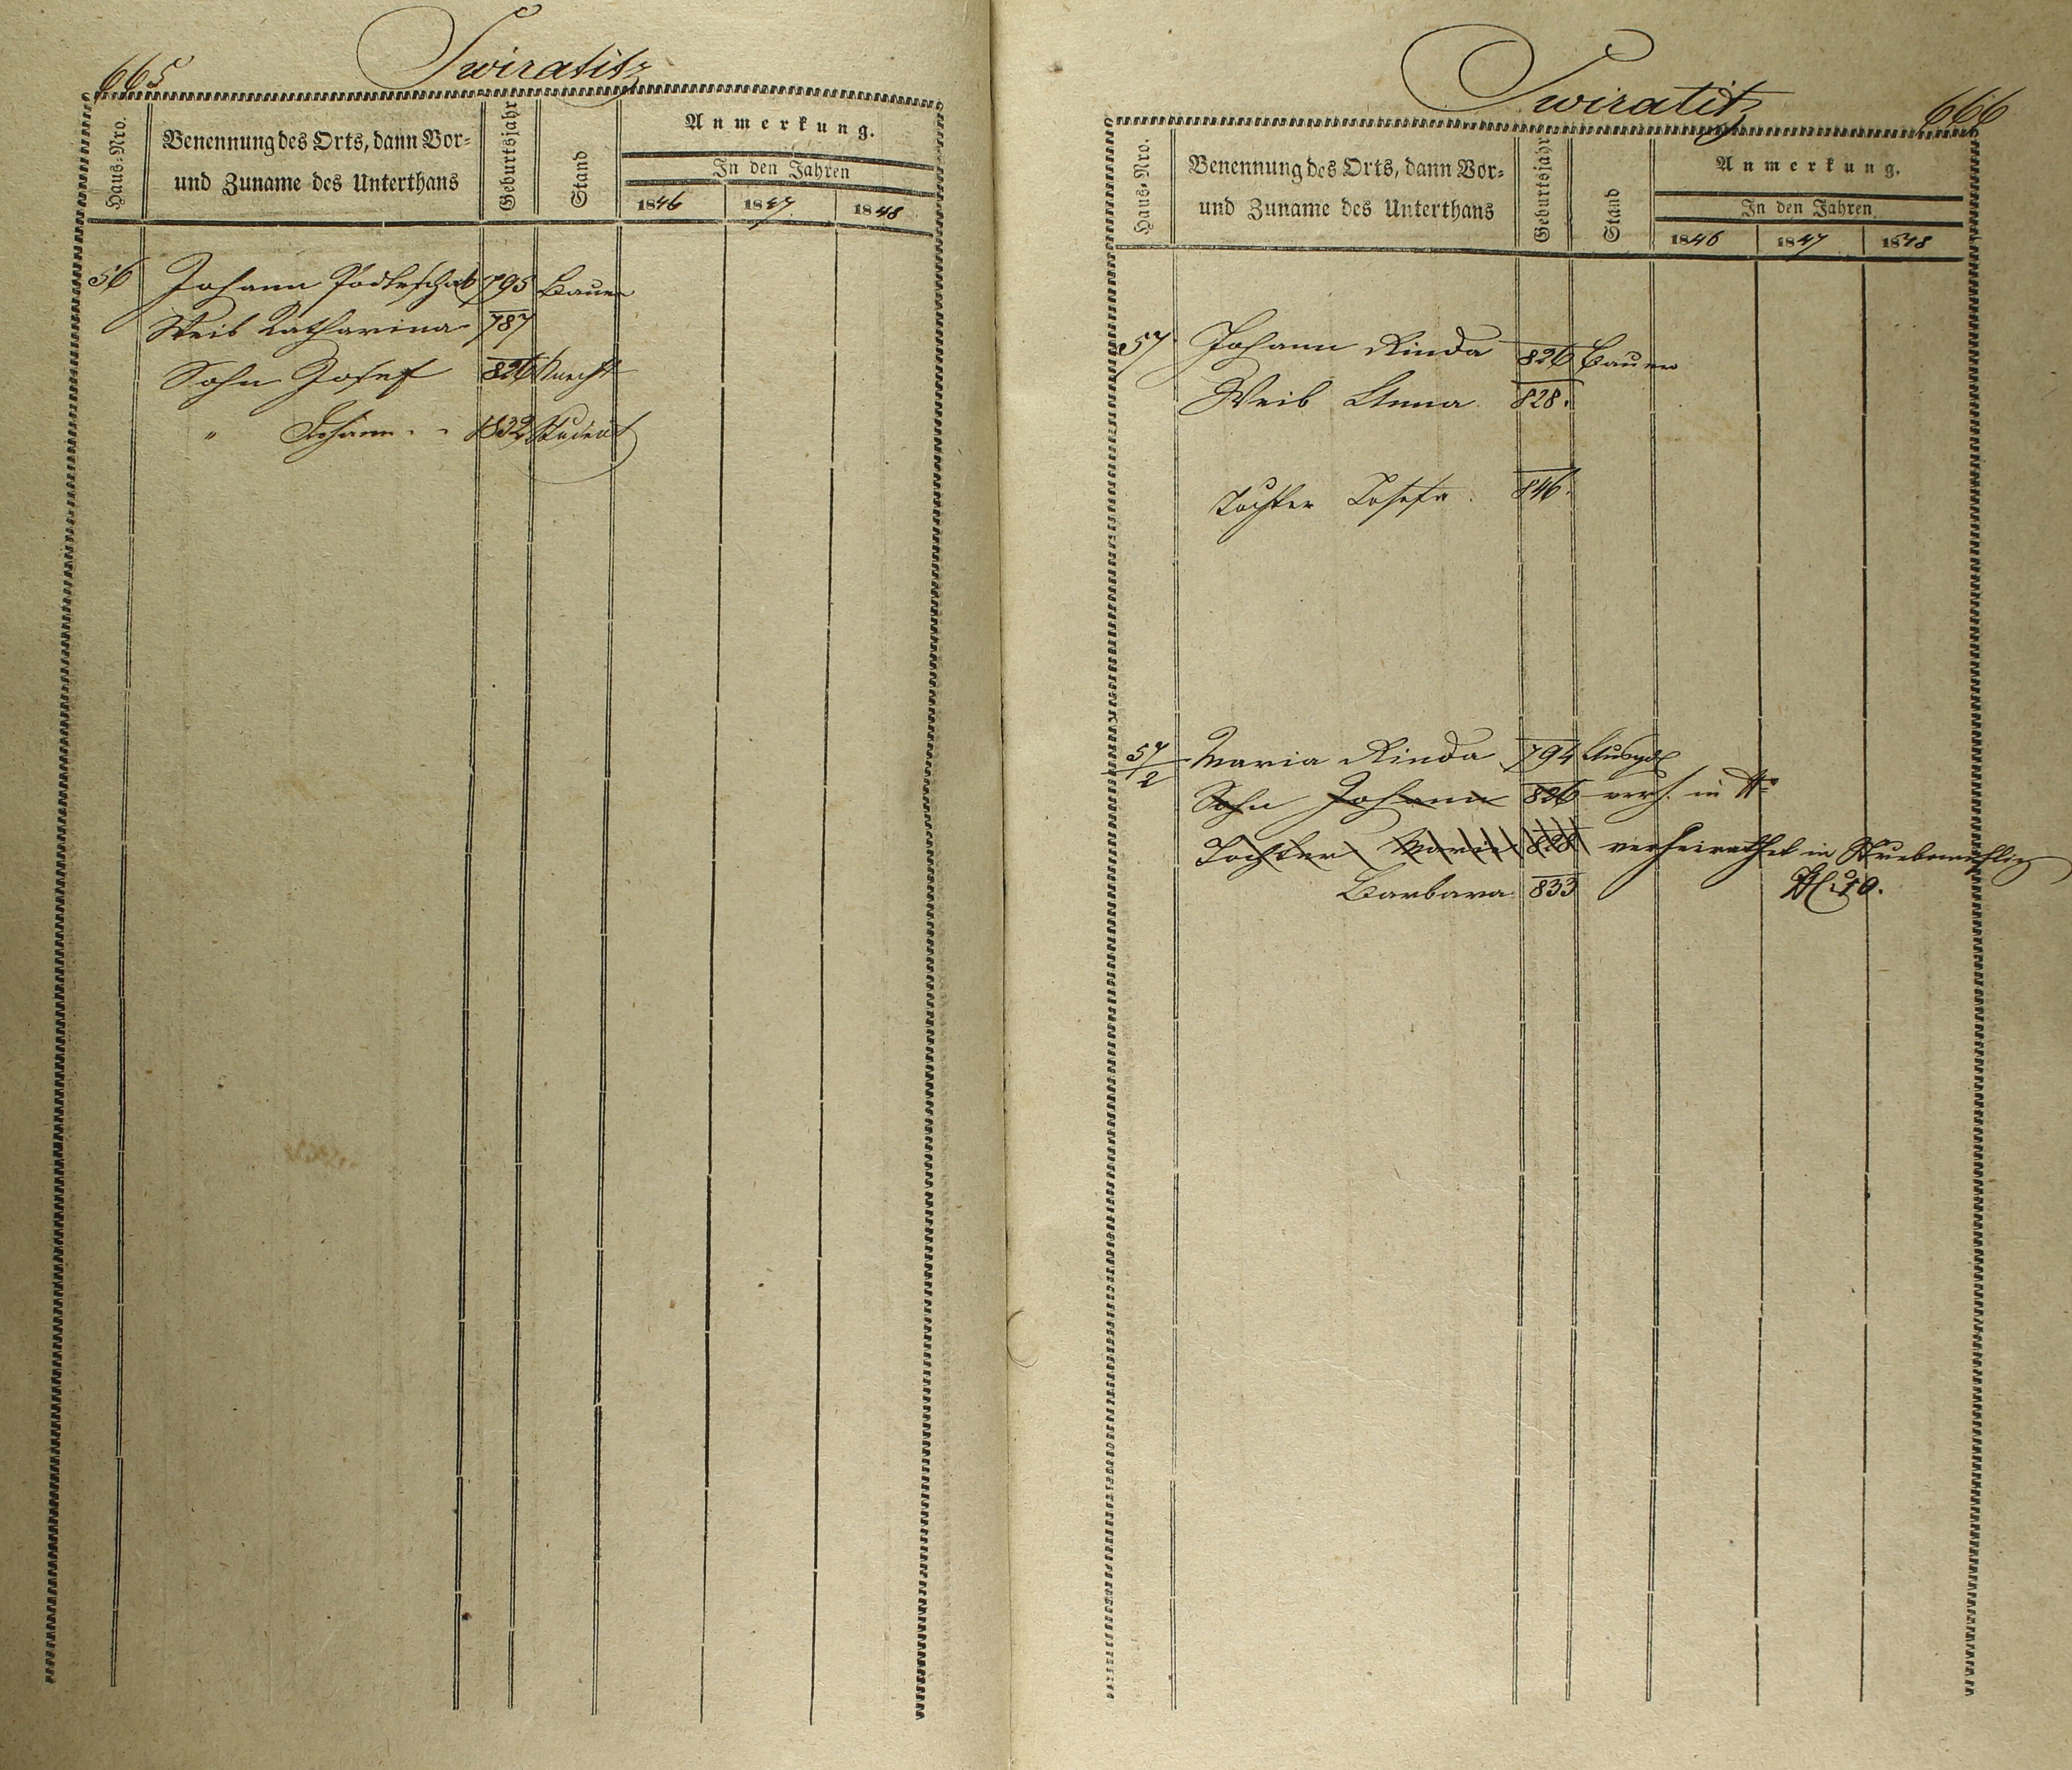 665
Swiratitz
Haus-Nro.
Benennung des Orts, dann Vor-
und Zuname des Unterthans
Geburtsjahr
Stand
Anmerkung.
In den Jahren
1846 1847 1848
56 Johann Podleschak 795 Bauer
Weib Katharina 787
Sohn Josef 826 Knecht
" Johann 1832 Student
Swiratitz
666
Haus-Nro.
Benennung des Orts, dann Vor-
und Zuname des Unterthans
Geburtsjahr
Stand
Anmerkung.
In den Jahren
1846 1847 1848
57 Johann Rinda 826 Bauer
Weib Anna 828.
Tochter Josefa 846.
57/2 Maria Rinda 794
Sohn Johann 826 verh. in
Tochter Maria 828 verheirathet in
Barbara 833